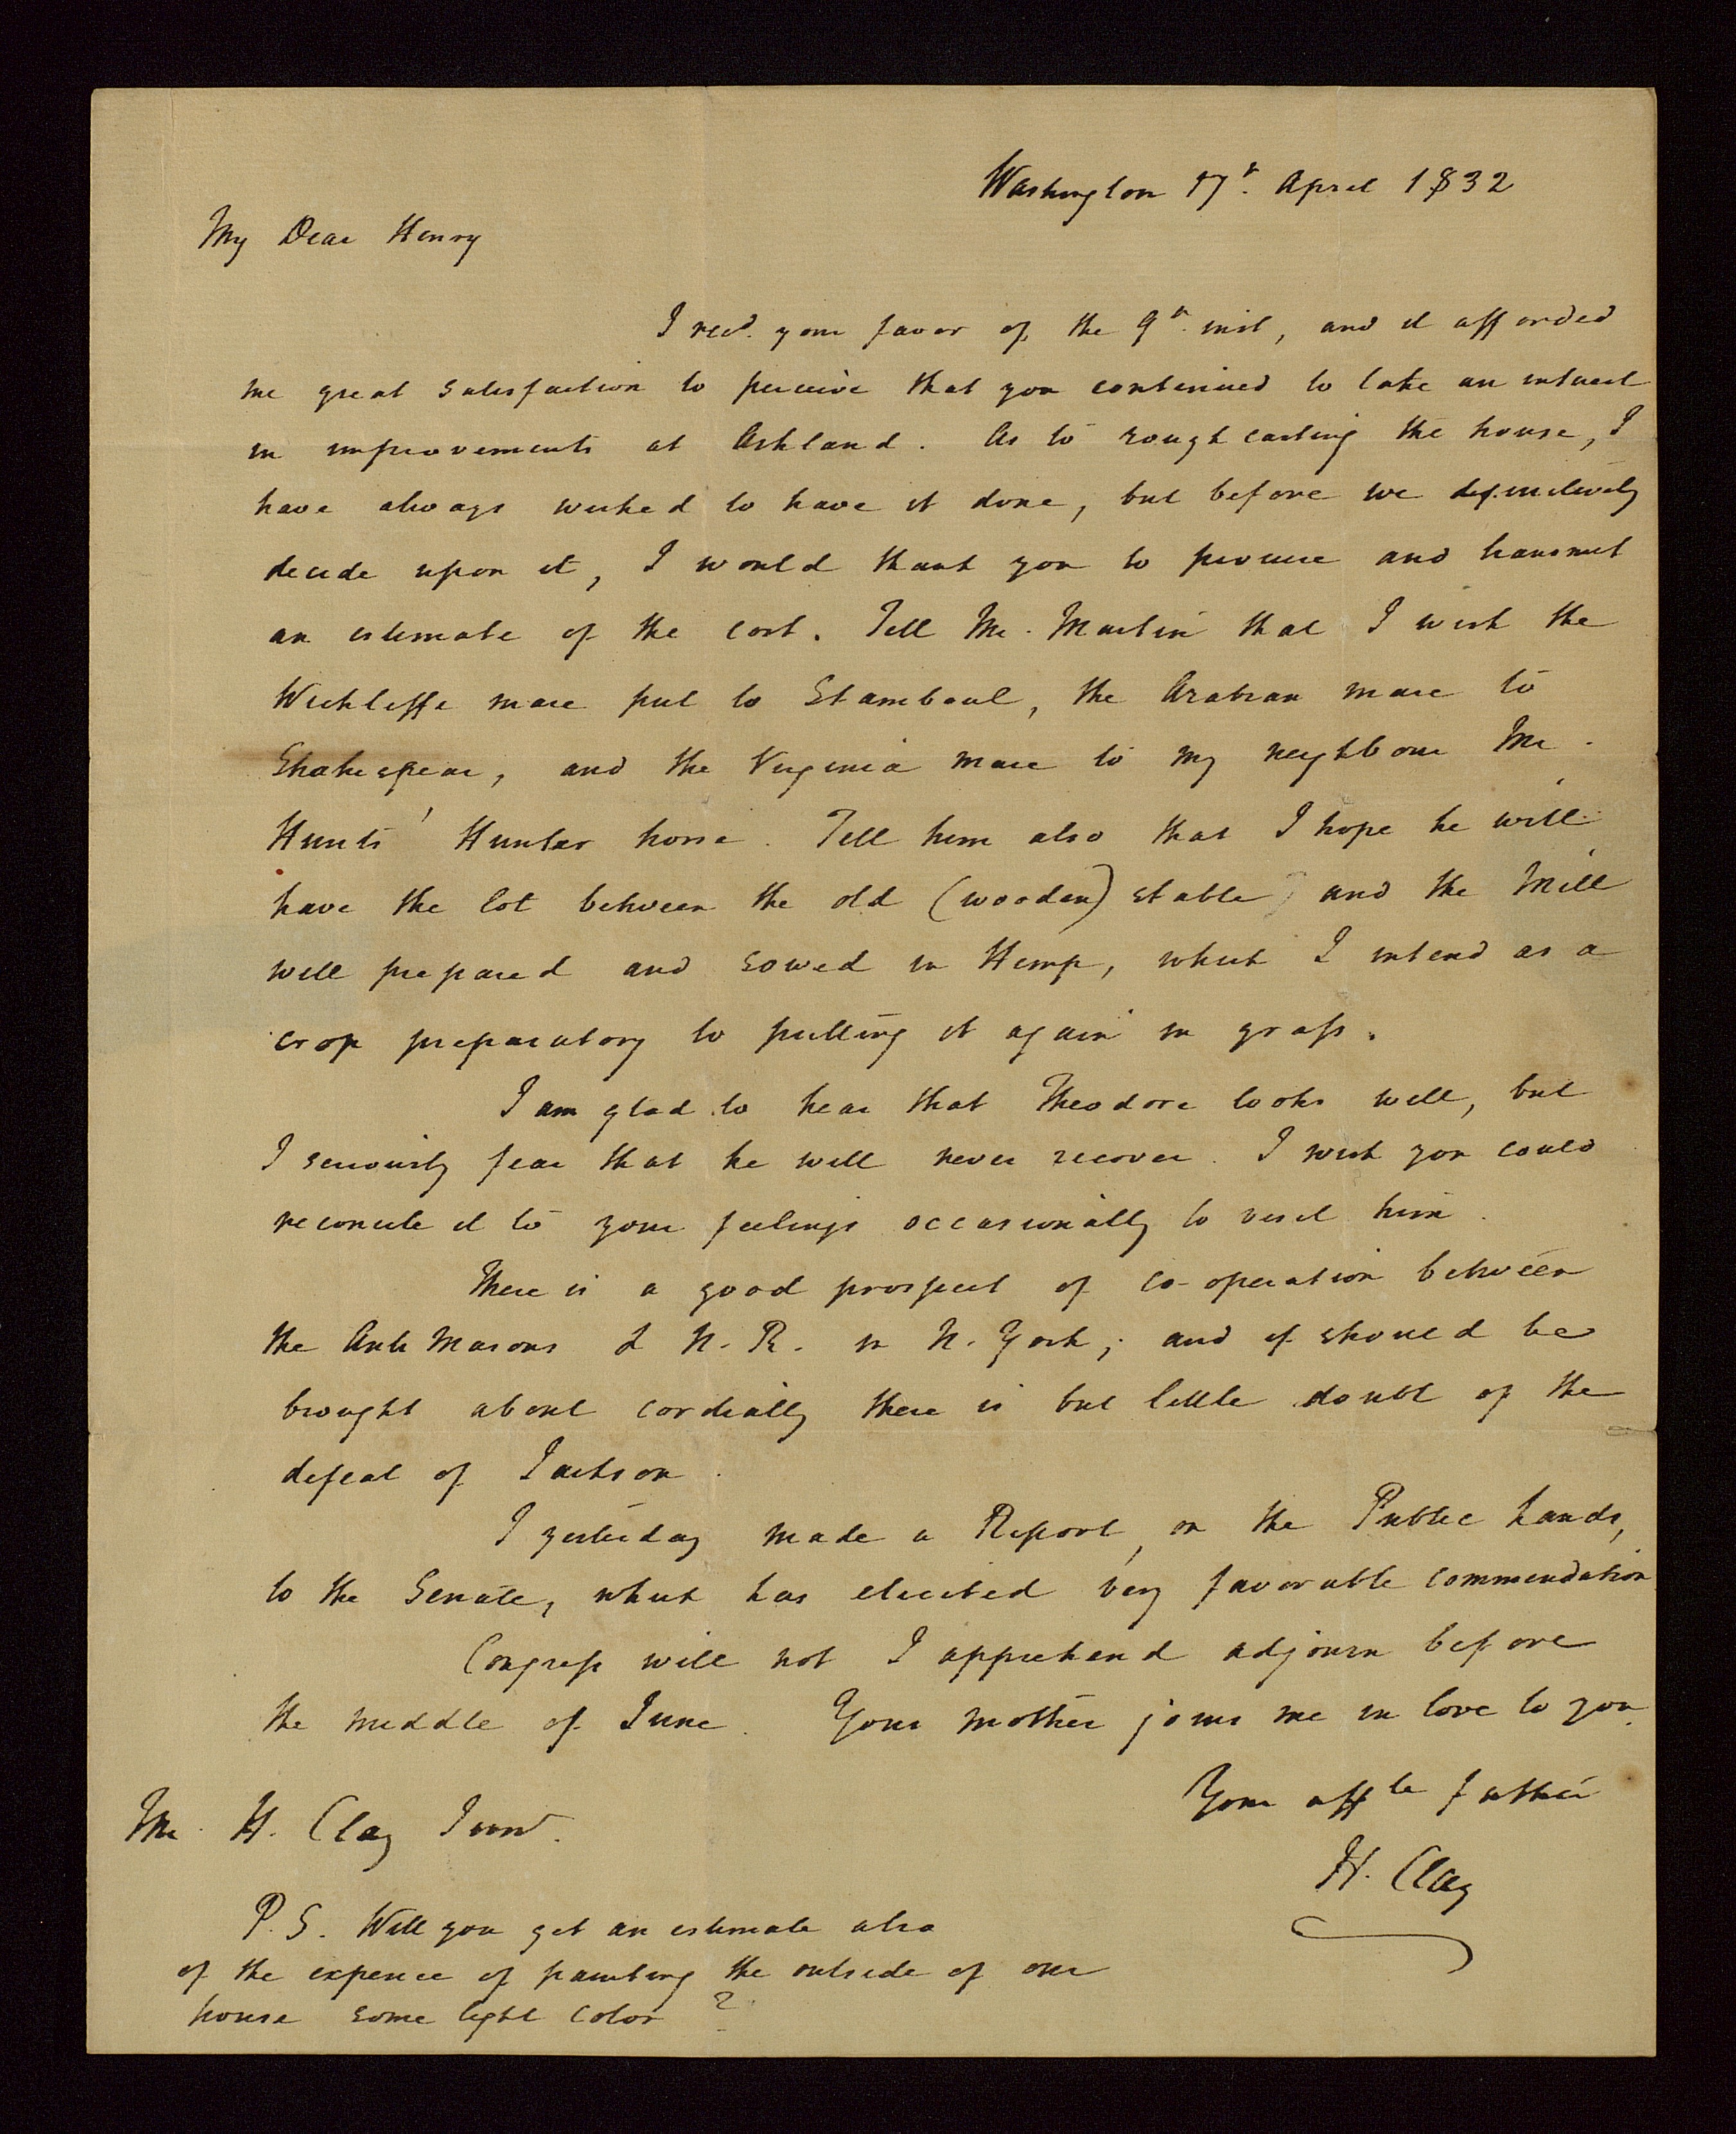 Washington 17h. April 1832
My Dear Henry
I recd. your favor of the 9h. inst, and it afforded
me great satisfaction to perceive that you continued to take an interest
in improvements at Ashland. As to rough casting the house, I
have always wished to have it done, but before we definitively
decide upon it, I would thank you to procure and transmit
an estimate of the cost. Tell Mr. Martin that I wish the
Wickliffe mare put to Stamboul, the Arabian mare to
Shakespear, and the Virginia mare to my neighbour Mr.
Hunts' Hunter horse. Tell him also that I hope he will
have the lot between the old (wooden) stable and the Mill
well prepared and sowed in Hemp, which I intend as a
crop preparatory to putting it again in grass.
I am glad to hear that Theodore looks well, but
I seriously fear that he will never recover. I wish you could
reconcile it to your feelings occasionally to visit him.
There is a good prospect of co-operation between
the Anti Masons & N. R. in N. York; and if should be
brought about cordially there is but little doubt of the
defeat of Jackson.
I yesterday made a Report, on the Public Lands,
to the Senate, which has elicited very favorable commendation
Congress will not I apprehend adjourn before
the middle of June. Your mother joins me in love to you.
Your affte father
H. Clay
Mr. H. Clay Junr.
P.S. Will you get an estimate also
of the expence of painting the outside of our
house some light color?